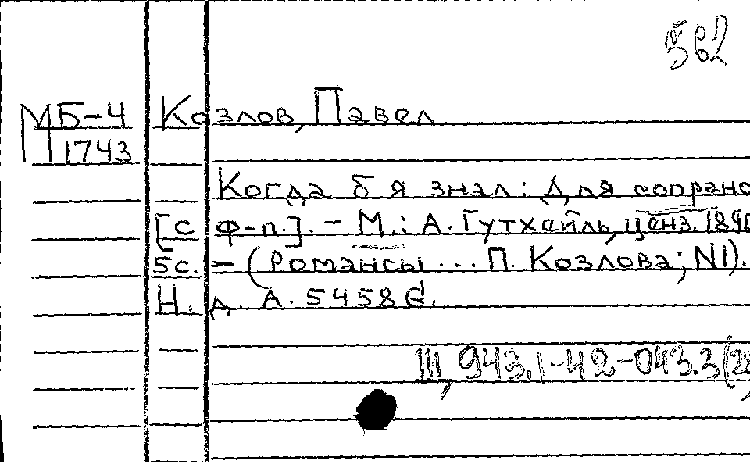 562
МБ-4 Козлов, Павел
П 1743
Когда б я знал: Для сопрано
[с ф-п.]. - М.: А. Гутхейль, ценз. 1890
5с. - (Романсы ... П. Козлова; N1).
Н. д. А. 5458 G.
III, 943.1-42-043.3(28